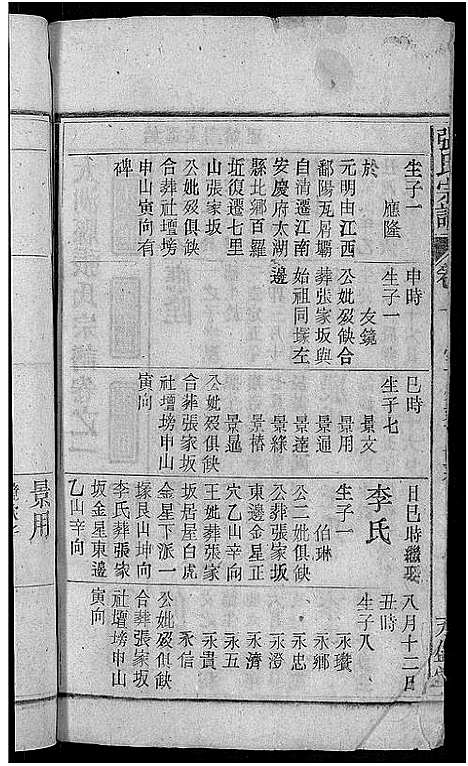 張氏宗譜
卷
生子一
應隆
於
元明由江西
鄱陽瓦屑壩
自淯遷江南
安慶府太湖
縣北鄉百羅
坵復遷七里
山張家坂
公妣歿俱缺
合葬社壇塝
申山寅向有
碑
申時
生子一
友鏡
公妣歿缺合
葬張家坂與
始祖同塚左
邊
巳時
生子七
景文
景用
景通
景達
景緣
景椿
景暹
公妣歿俱缺
合葬張家坂
社壇塝申山
寅向
日巳時繼娶
李氏
生子一
伯琳
公二妣俱缺
公葬張家坂
東邊金星正
穴乙山辛向
王妣葬張家
坂居屋白虎
金星下派一
塚艮山坤向
李氏葬張家
坂金星東邊
乙山辛向
景用
八月十二日
丑時
生子八
永瓚
永鄉
永忠
永澄
永濟
永五
永貴
永信
公妣歿俱缺
合葬張家坂
社壇塝申山
寅向